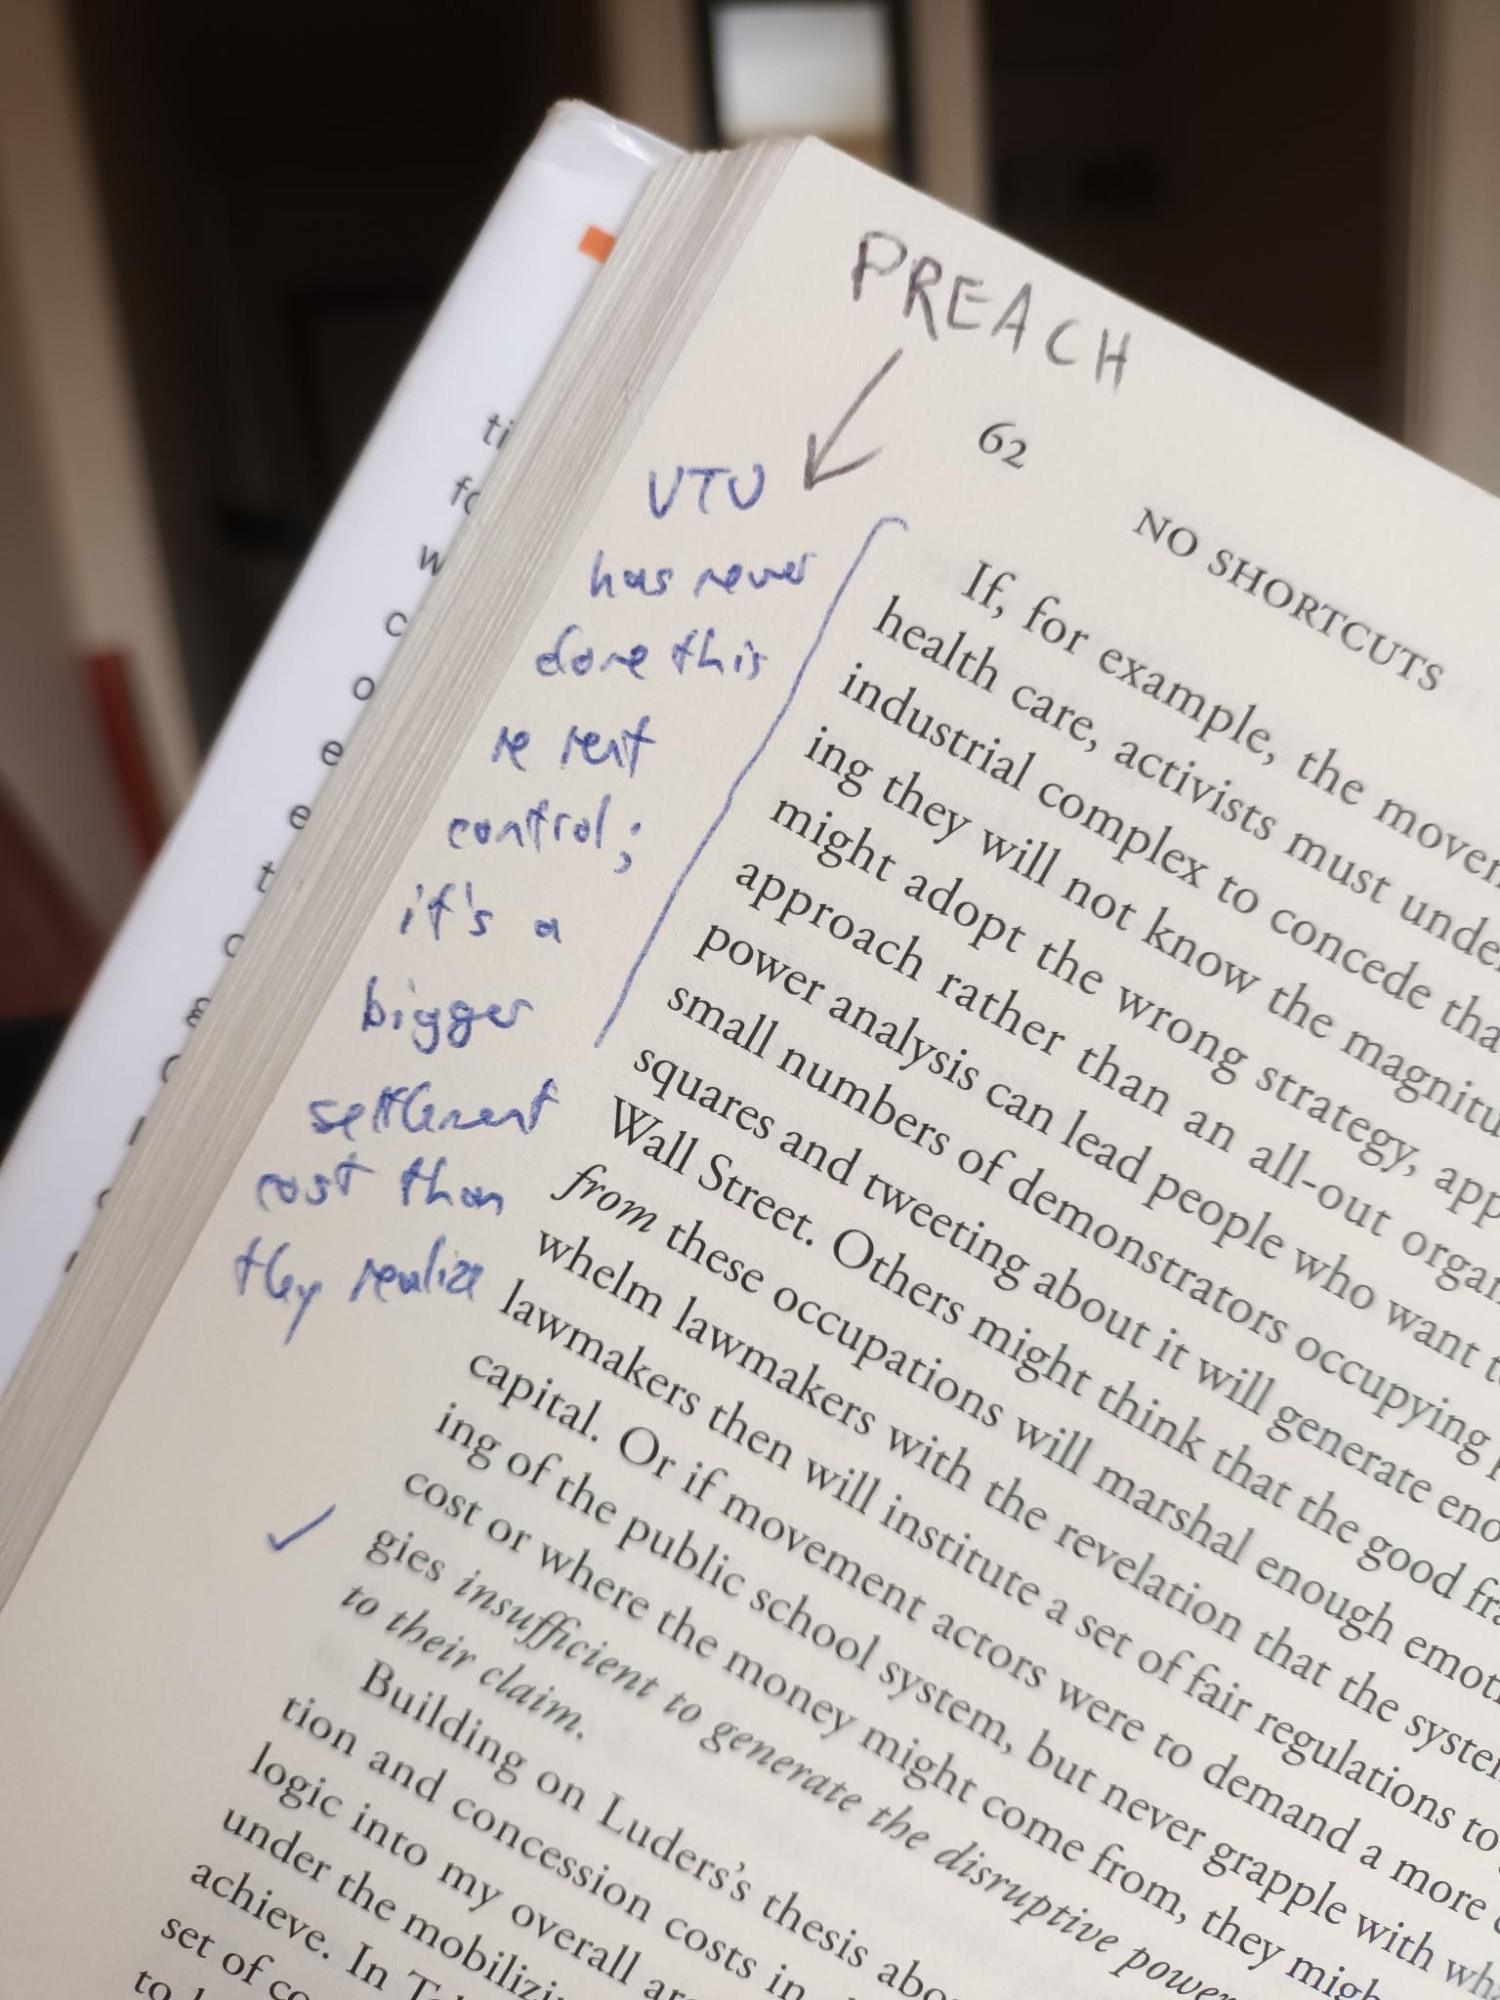 PREACH
62
NO SHORTCUTS
VTU
has never
done this
re rent
control;
it's a
bigger
settlement
cost than
they realize
If, for example, the
health care, activists must
industrial complex to concede
ing they will not know the
might adopt the wrong strategy,
approach rather than an all-out
power analysis can lead people who want
small numbers of demonstrators occupying
squares and tweeting about it will generate
Wall Street. Others might think that the good
from these occupations will marshal enough
whelm lawmakers with the revelation that the
lawmakers then will institute a set of fair regulations to
capital. Or if movement actors were to demand a more
ing of the public school system, but never grapple with
cost or where the money might come from, they
gies insufficient to generate the disruptive power
to their claim.
Building on Luders's thesis
tion and concession costs in
logic into my overall
under the
achieve. In
set of
to